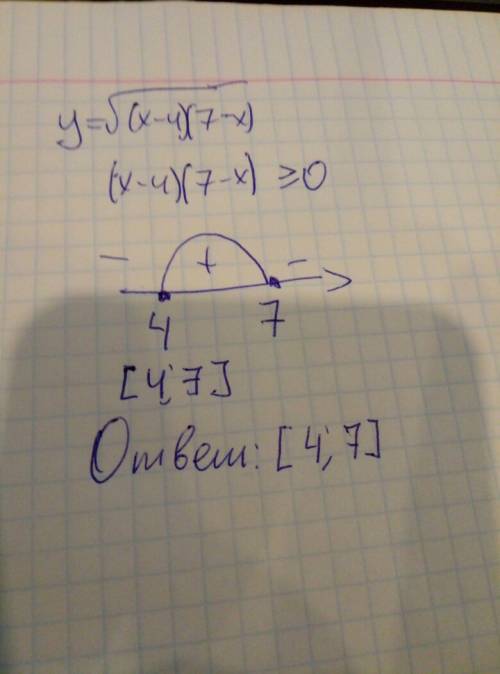 y=√(x-4)(7-x)
(x-4)(7-x) ≥0
- + -
4 7
[4;7]
Ответ: [4;7]